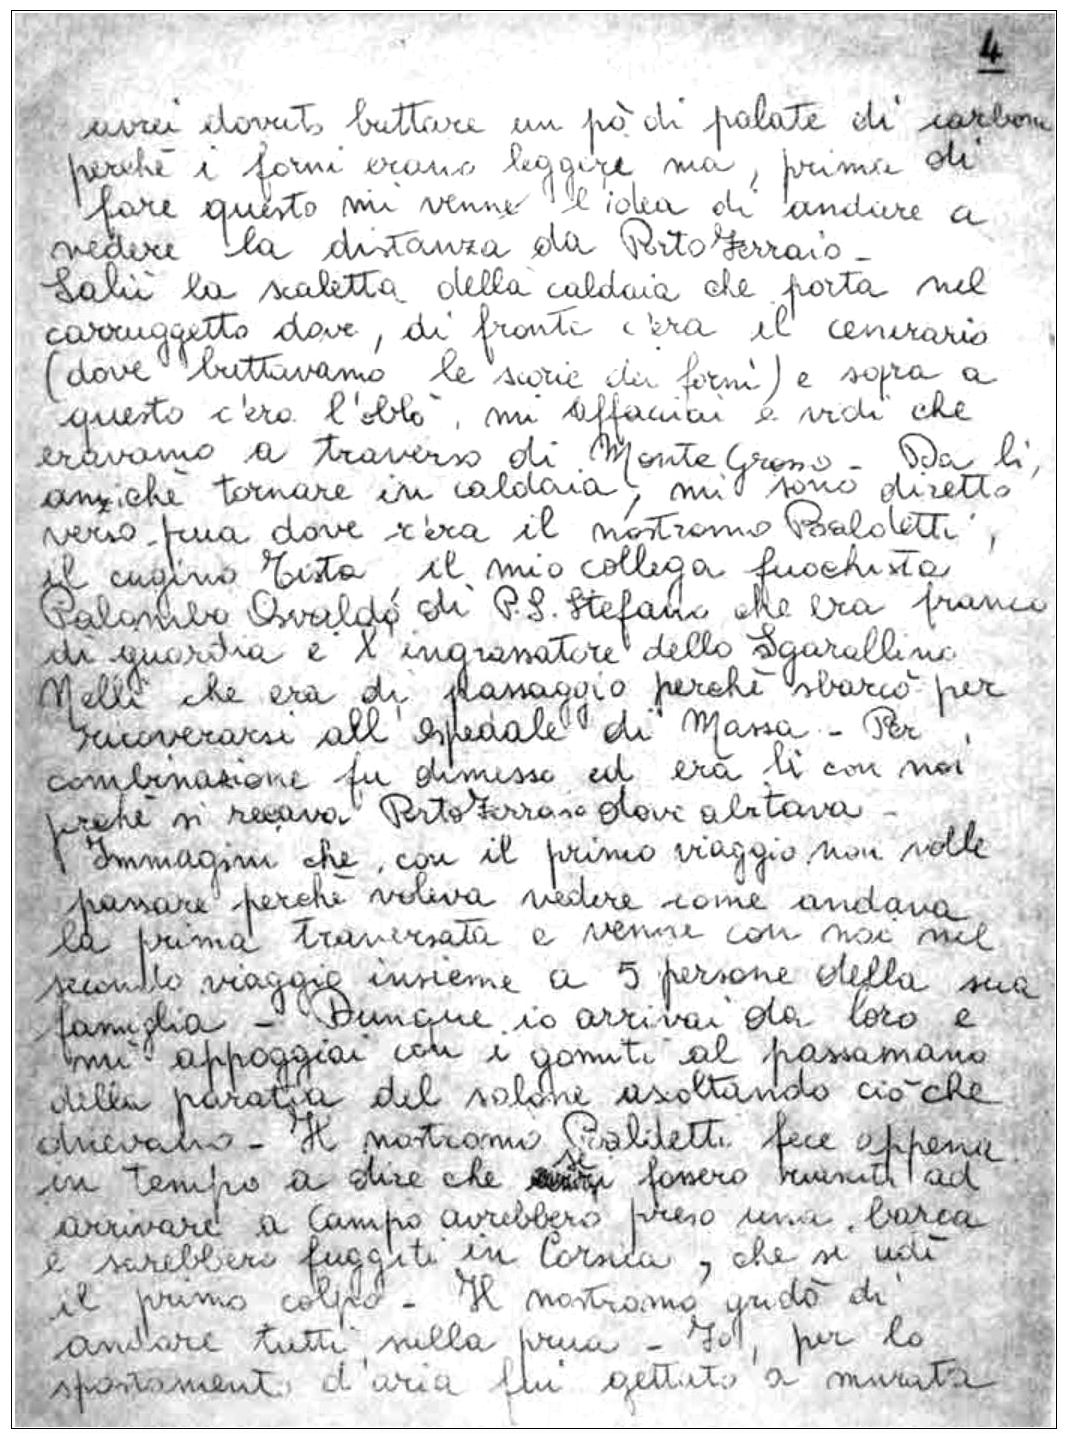 4
avrei dovuto buttare un pò di palate di carbone
perchè i forni erano leggeri ma, prima di
fare questo mi venne l'idea di andare a
vedere la distanza da PortoFerraio -
Salii la scaletta della caldaia che porta nel
carruggetto dove, di fronte c'era il cenerario
(dove buttavamo le scorie dei forni) e sopra a
questo c'era l'oblò, mi affacciai e vidi che
eravamo a traverso di Monte Grosso - Da lì,
anzichè tornare in caldaia, mi sono diretto
verso prua dove c'era il nostromo Baldetti,
il cugino Tista, il mio collega fuochista
Palombo Osvaldo di P.S. Stefano che era franco
di guardia e l'ingrassatore dello Sgarallino
Nelli che era di passaggio perchè sbarcò per
ricoverarsi all'ospedale di Massa - Per
combinazione fu dimesso ed era lì con noi
perchè si recava PortoFerraio dove abitava -
Immagini che, con il primo viaggio non volle
passare perchè voleva vedere come andava
la prima traversata e venne con noi nel
secondo viaggio insieme a 5 persone della sua
famiglia - Dunque io arrivai da loro e
mi appoggiai con i gomiti al passamano
della paratia del salone ascoltando ciò che
dicevano - Il nostromo Baldetti fece appena
in tempo a dire che se fossero riusciti ad
arrivare a Campo avrebbero preso una barca
e sarebbero fuggiti in Corsica, che si udì
il primo colpo - Il nostromo gridò di
andare tutti sulla prua - Io, per lo
spostamento d'aria fui gettato a murata